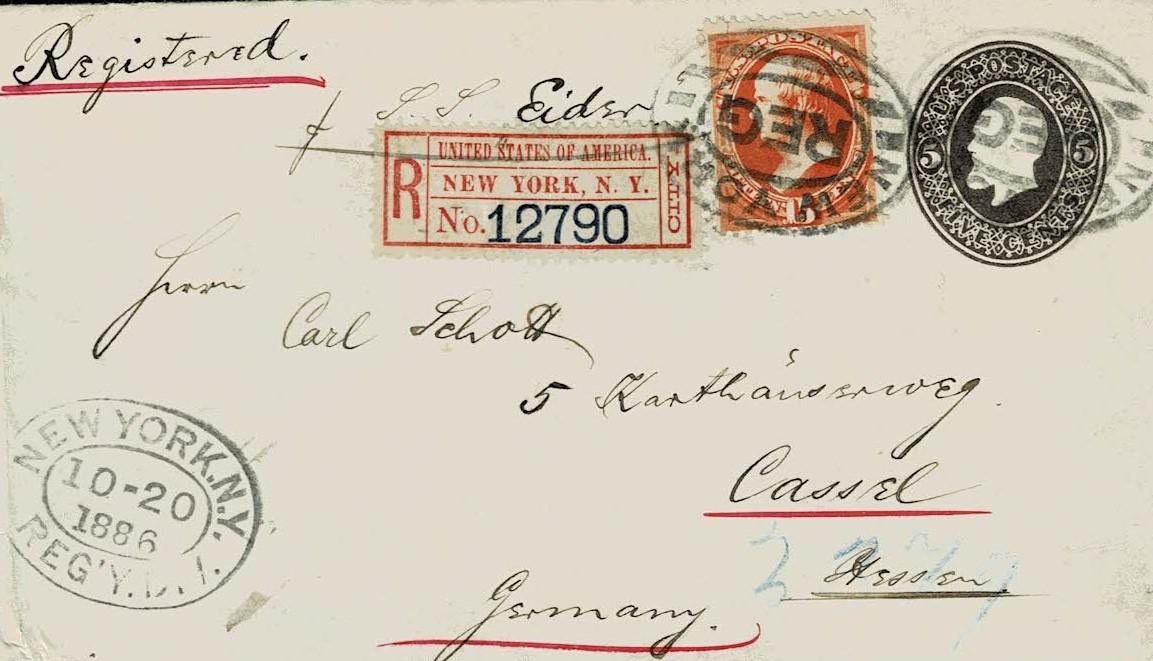 Registered.
S. S. Eider
UNITED STATES OF AMERICA.
R
NEW YORK, N. Y.
No. 12790
REG
U.S. POSTAGE
5 5
FIVE CENTS
Herrn
Carl Schott
5 Karthäuserweg.
Cassel
Hessen
Germany.
NEW YORK. N.Y.
10-20
1886
REG'Y. D.